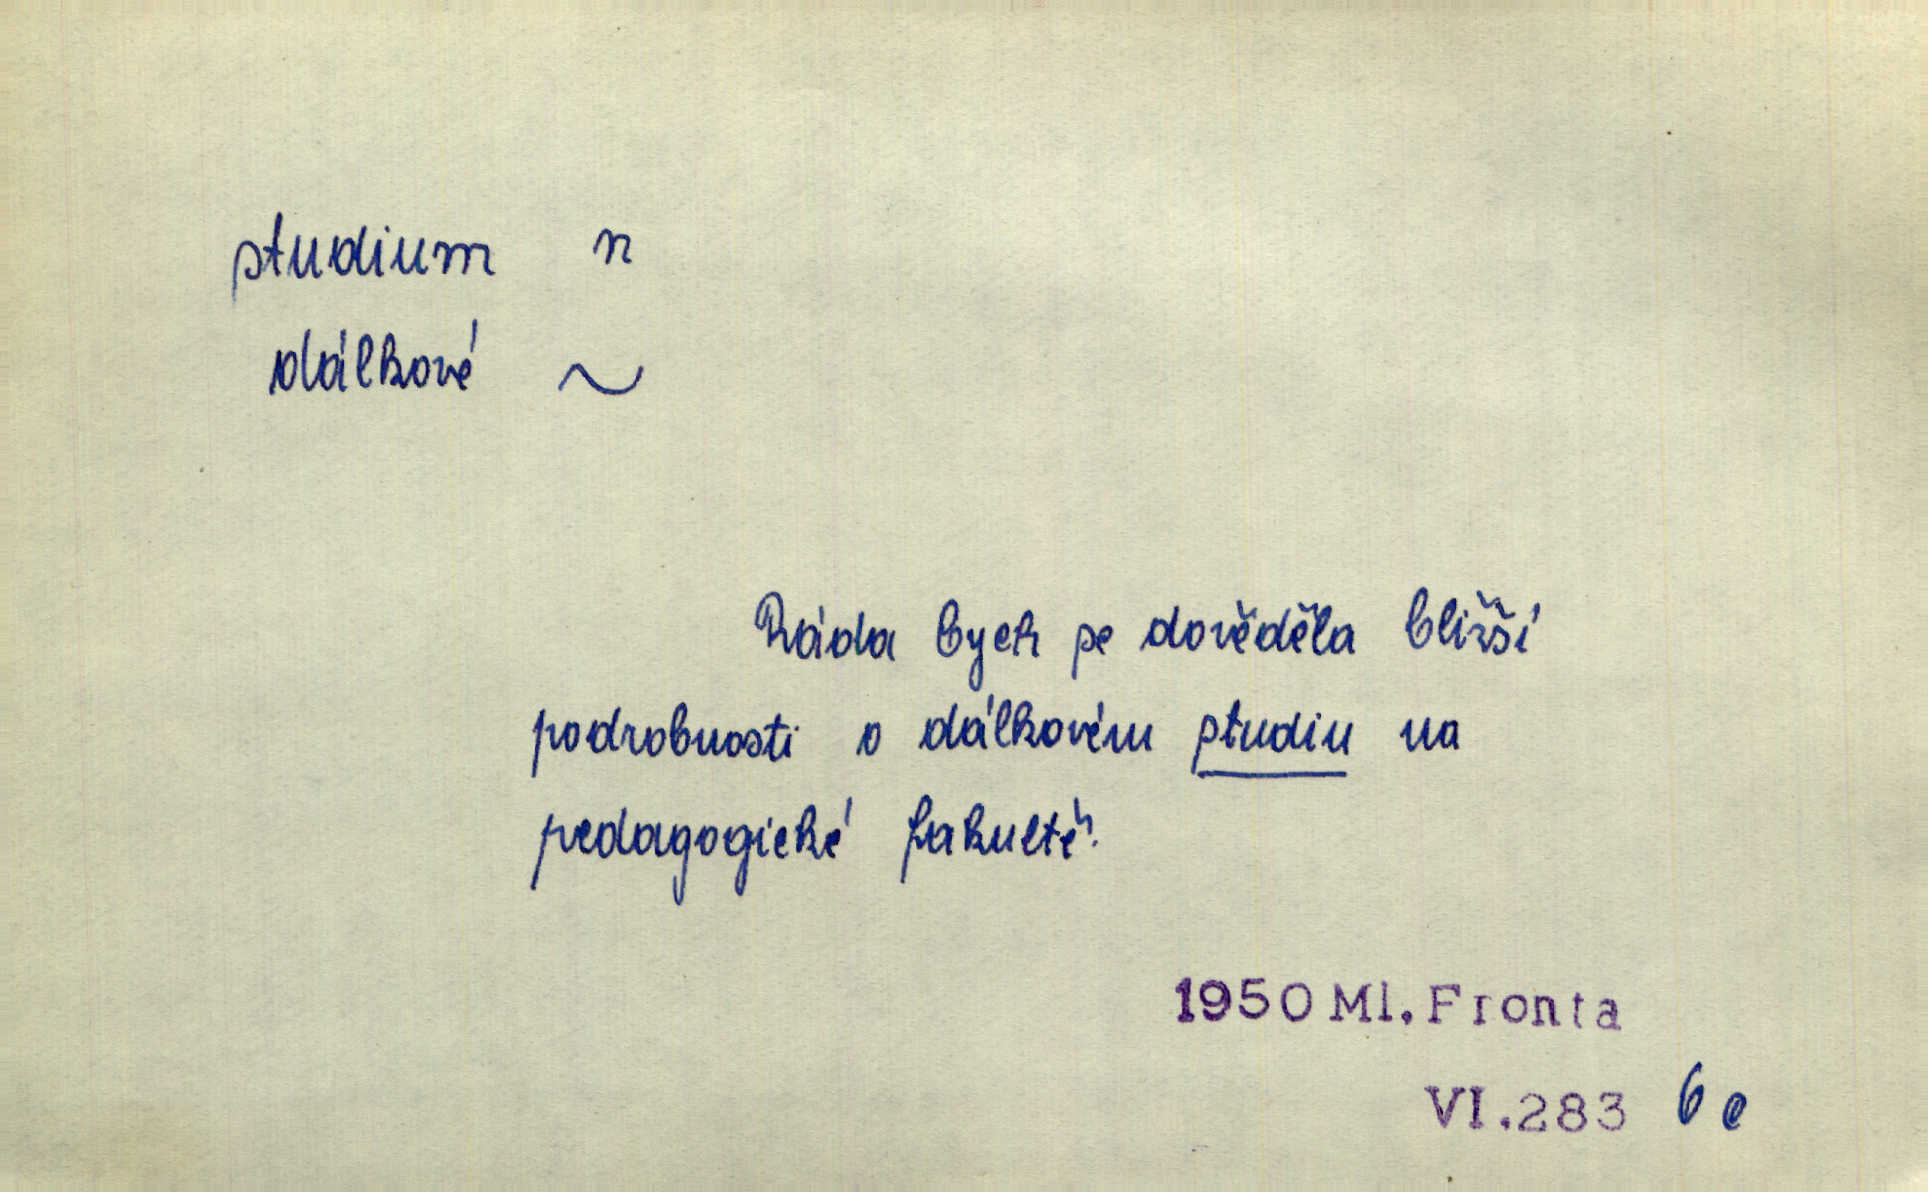 studium n
dálkové ~
Ráda bych se dověděla bližší
podrobnosti o dálkovém studiu na
pedagogické fakultě.
1950 Ml. Fronta
VI.283 6e